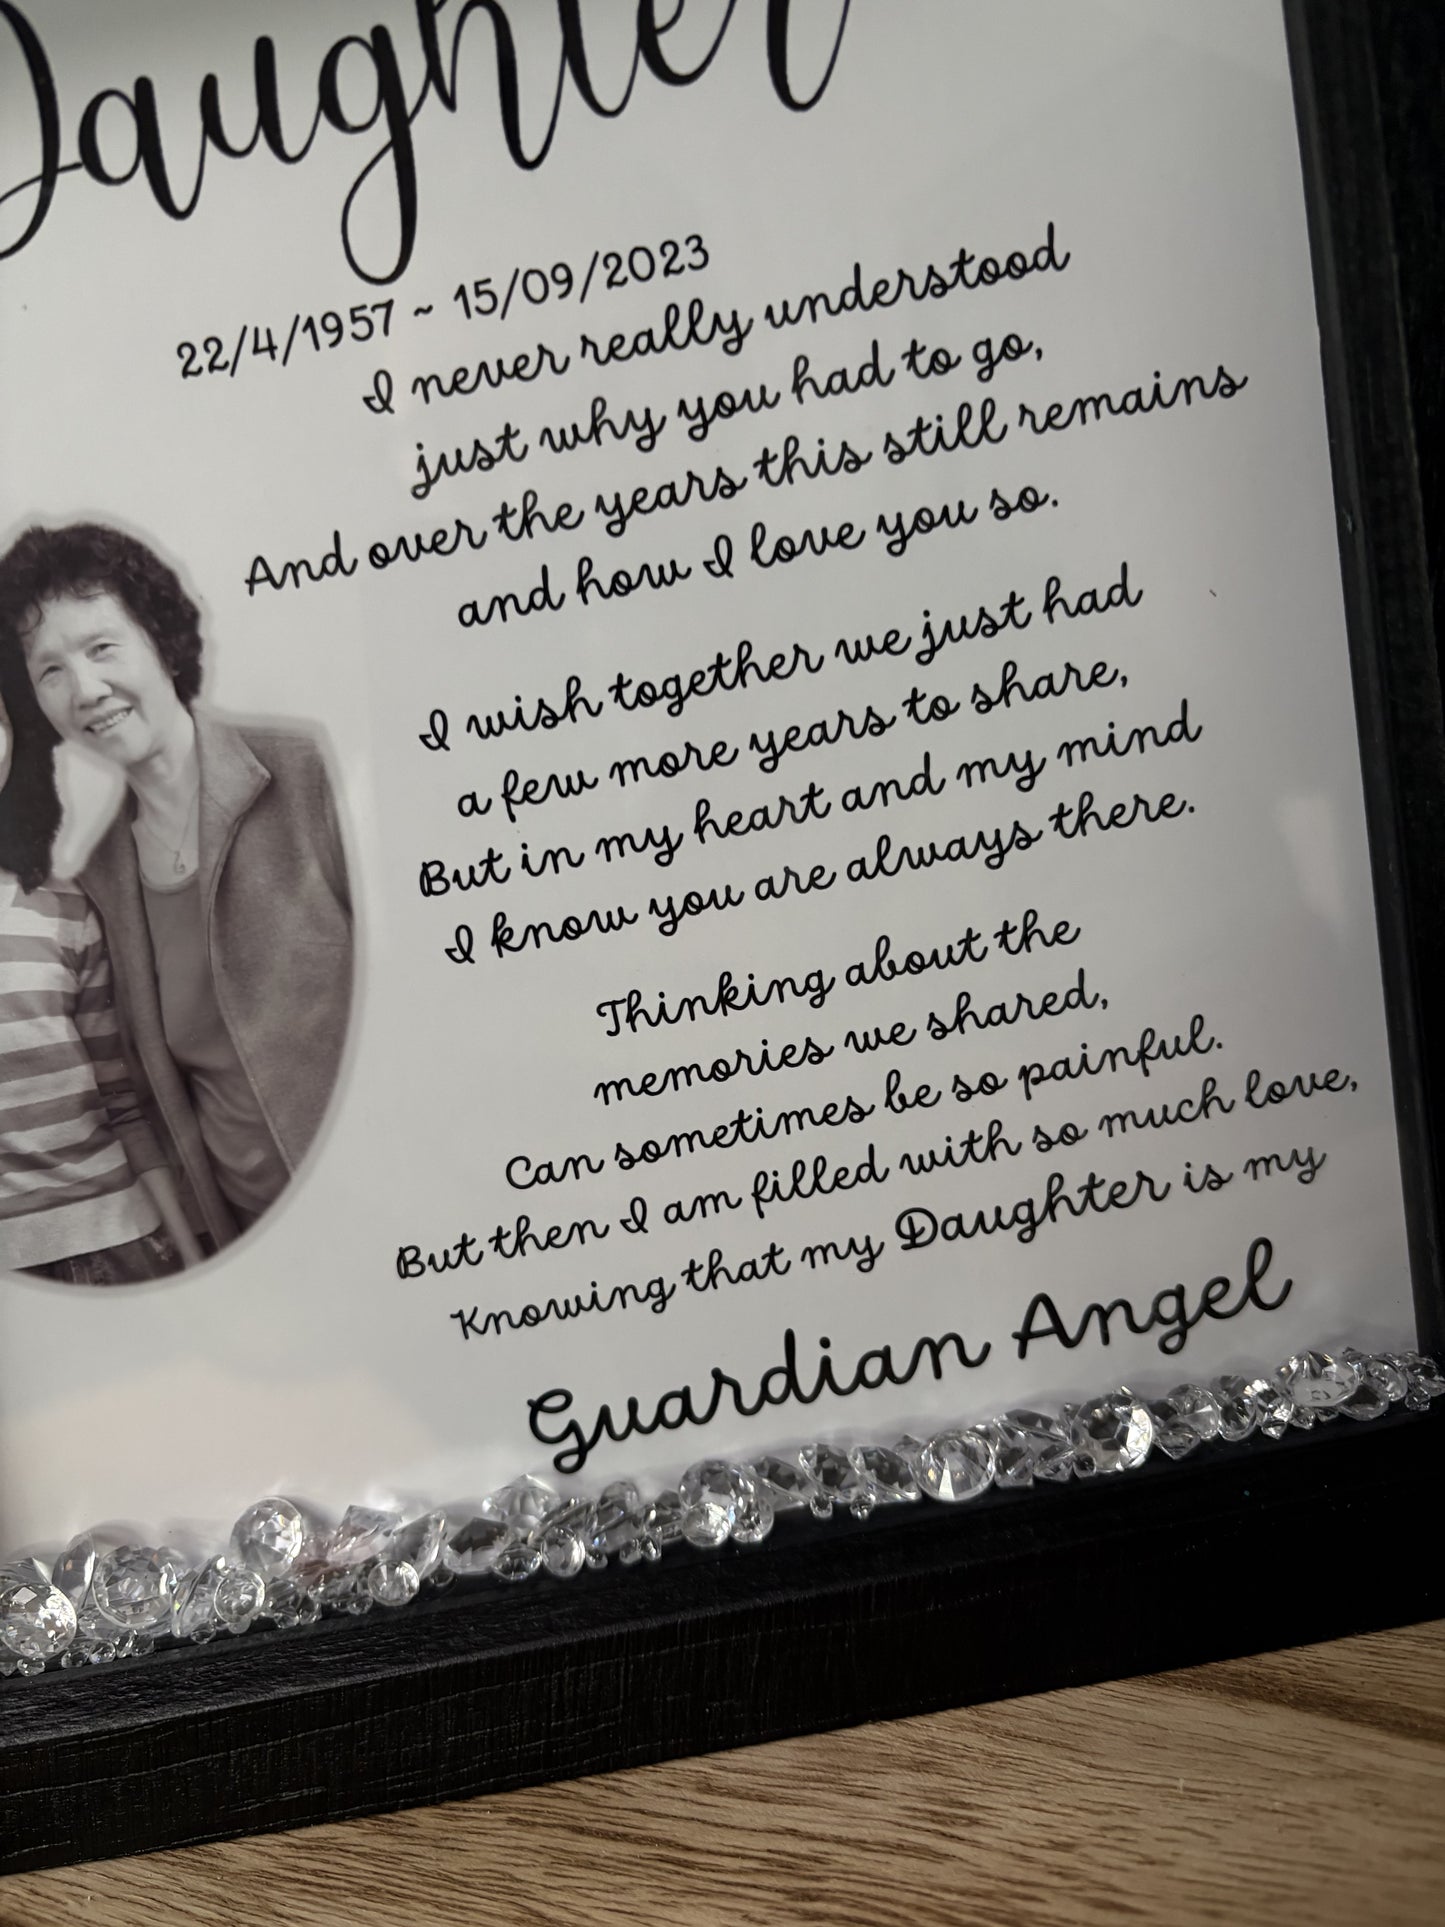 Daughter
22/4/1957 ~ 15/09/2023
I never really understood
just why you had to go,
And over the years this still remains
and how I love you so.
I wish together we just had
a few more years to share,
But in my heart and my mind
I know you are always there.
Thinking about the
memories we shared,
Can sometimes be so painful.
But then I am filled with so much love,
Knowing that my Daughter is my
Guardian Angel